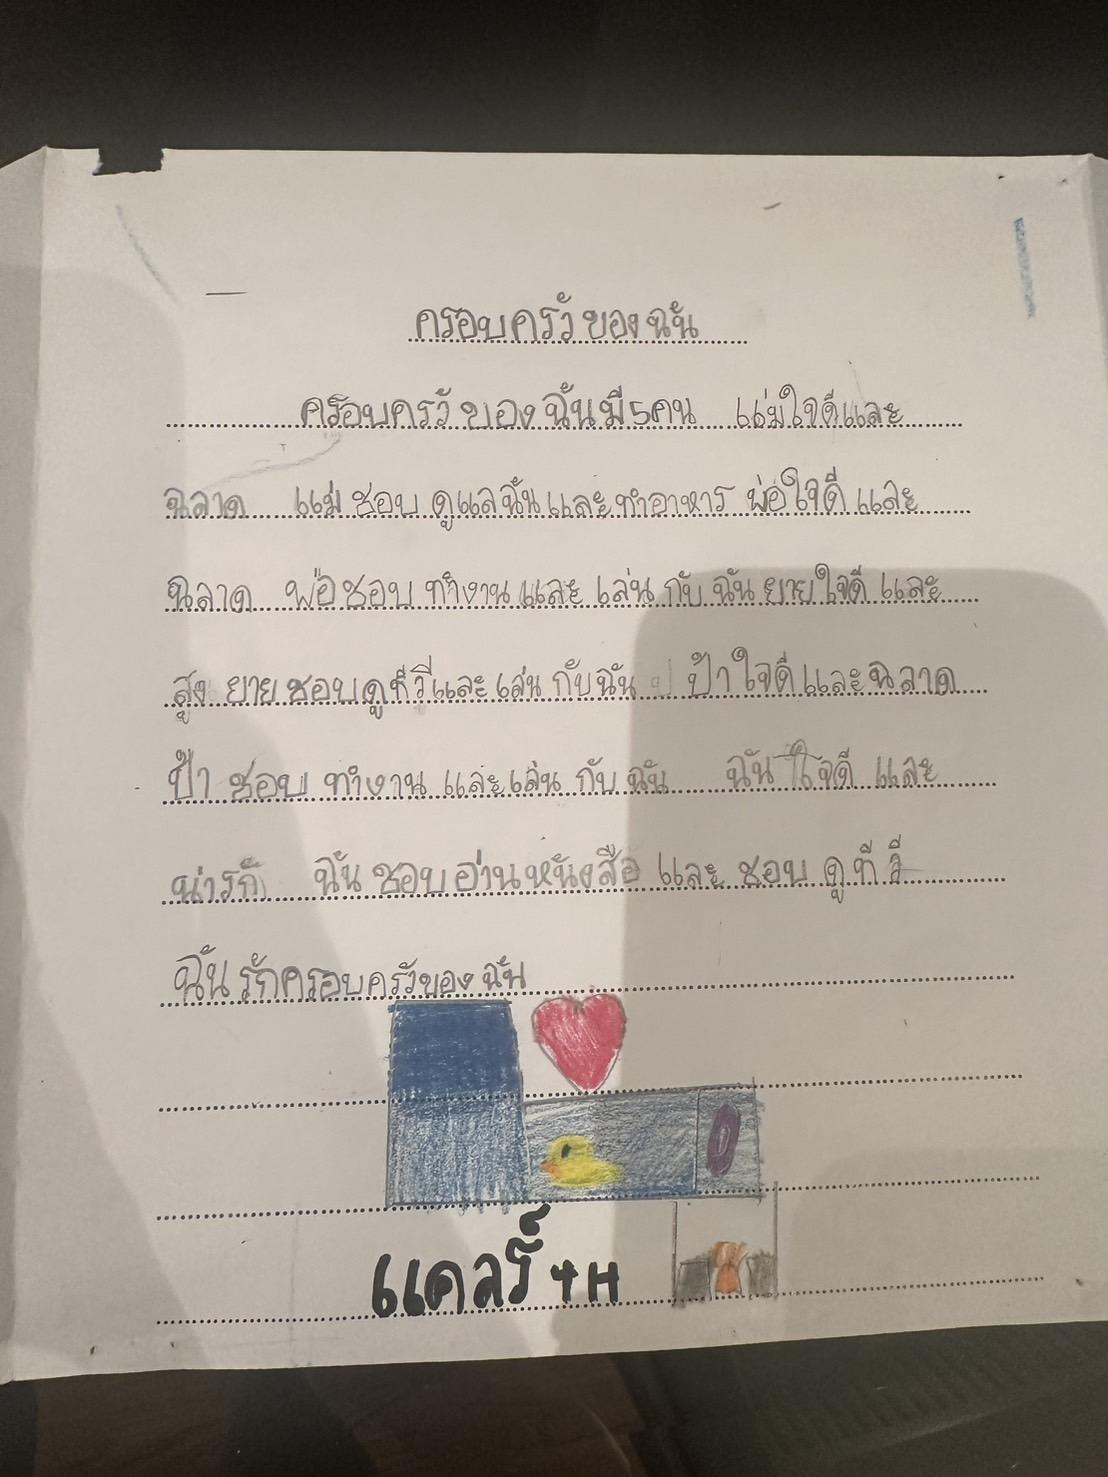 ครอบครัวของฉัน
ครอบครัวของฉันมี5คน แม่ใจดีและ
ฉลาด แม่ชอบดูแลฉันและทำอาหาร พ่อใจดีและ
ฉลาด พ่อชอบทำงานและเล่นกับฉัน ยายใจดีและ
สูง ยายชอบดูทีวีและเล่นกับฉัน ป้าใจดีและฉลาด
ป้าชอบทำงานและเล่นกับฉัน ฉันใจดีและ
น่ารัก ฉันชอบอ่านหนังสือและชอบดูทีวี
ฉันรักครอบครัวของฉัน
แคลร์ 4H